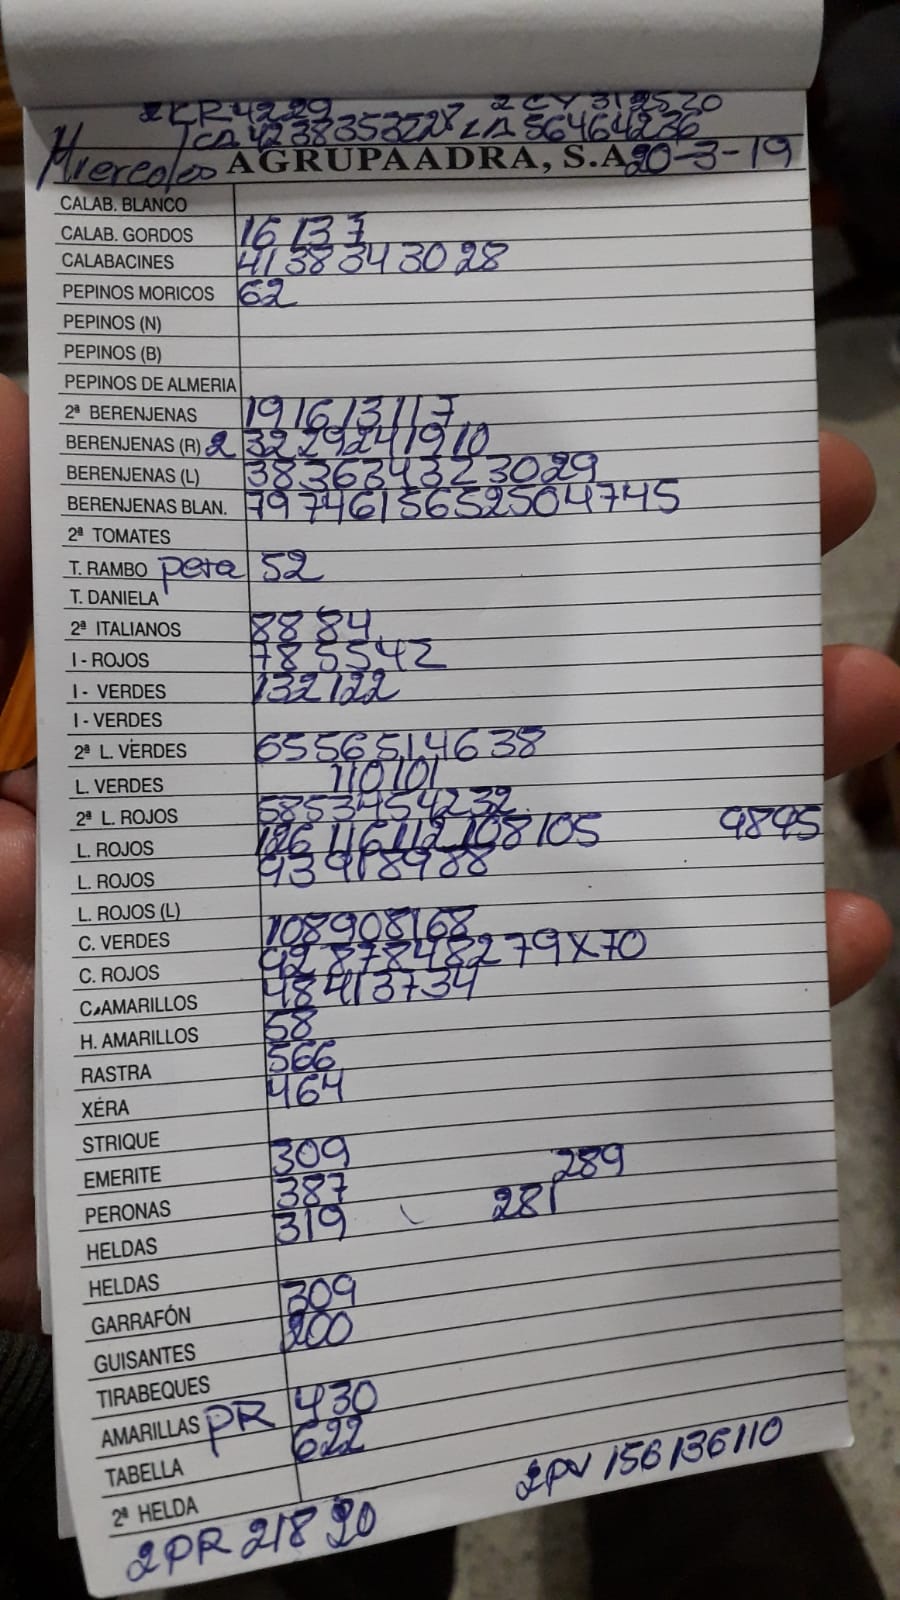 2CR 42 29 2CV 31 25 20
CA 42 38 35 32 28 LA 56 46 42 36
Miercoles AGRUPAADRA, S.A. 20-3-19
CALAB. BLANCO
CALAB. GORDOS 16 13 7
CALABACINES 41 38 34 30 28
PEPINOS MORICOS 62
PEPINOS (N)
PEPINOS (B)
PEPINOS DE ALMERIA
2ª BERENJENAS 19 16 13 11 7
BERENJENAS (R) 2 32 29 24 19 10
BERENJENAS (L) 38 36 34 32 30 29
BERENJENAS BLAN. 79 74 61 56 52 50 47 45
2ª TOMATES
T. RAMBO pera 52
T. DANIELA
2ª ITALIANOS 88 84
I - ROJOS 78 55 42
I - VERDES 132 122
I - VERDES
2ª L. VERDES 65 56 51 46 38
L. VERDES 110 101
2ª L. ROJOS 58 53 45 42 32
L. ROJOS 126 116 112 108 105 98 95
L. ROJOS 93 91 89 88
L. ROJOS (L)
C. VERDES 108 90 81 68
C. ROJOS 92 87 84 82 79 X70
C. AMARILLOS 48 41 37 34
H. AMARILLOS 58
RASTRA 566
XÉRA 464
STRIQUE
EMERITE 309
PERONAS 387 289
HELDAS 319 281
HELDAS
GARRAFÓN 309
GUISANTES 200
TIRABEQUES
AMARILLAS PR 430
TABELLA 622
2ª HELDA
2PR 218 2PV 156 136 110